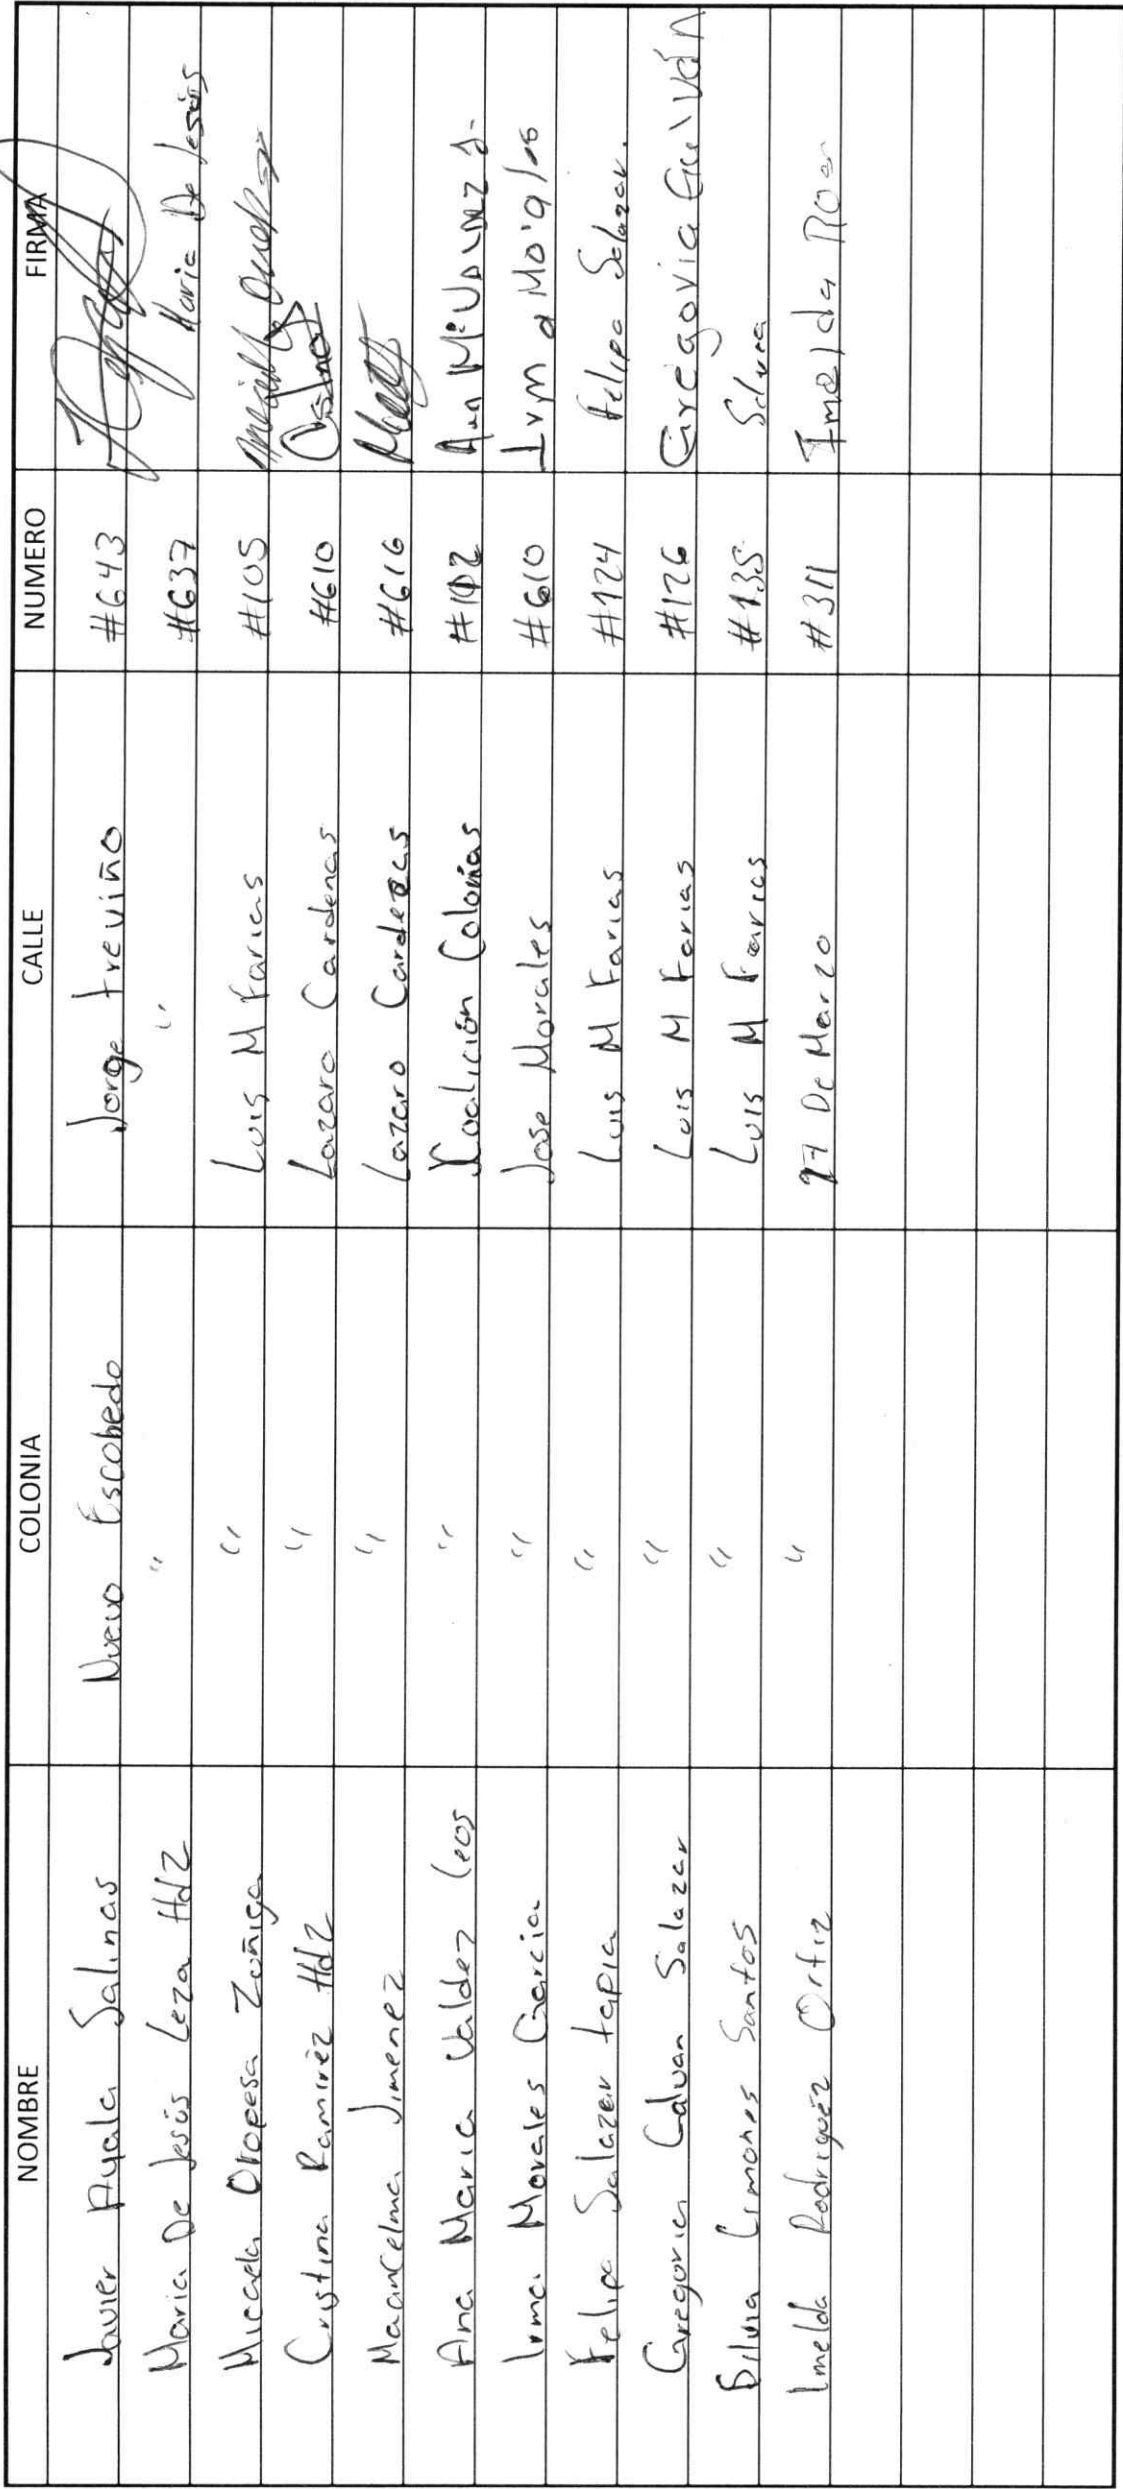 NOMBRE COLONIA CALLE NUMERO FIRMA
Javier Ayala Salinas Nuevo Escobedo Jorge treviño #643
Maria De Jesús Leza Hdz " " #637 Maria De Jesús
Micaela Oropesa Zuñiga " Luis M Farias #105
Cristina Ramiréz Hdz " Lazaro Cardenas #610
Macancelma Jimenez " Lazaro Cardenas #616
Ana Maria Valdez Leos " Coalición Colonias #102
Irma Morales Garcia " Jose Morales #610
Felipa Salazar tapia " Luis M Farias #124 Felipa Salazar.
Gregoria Galvan Salazar " Luis M Farias #126
Silvia Limones Santos " Luis M Farias #135
Imelda Rodriguéz Ortiz " 27 De Marzo #311 Imelda